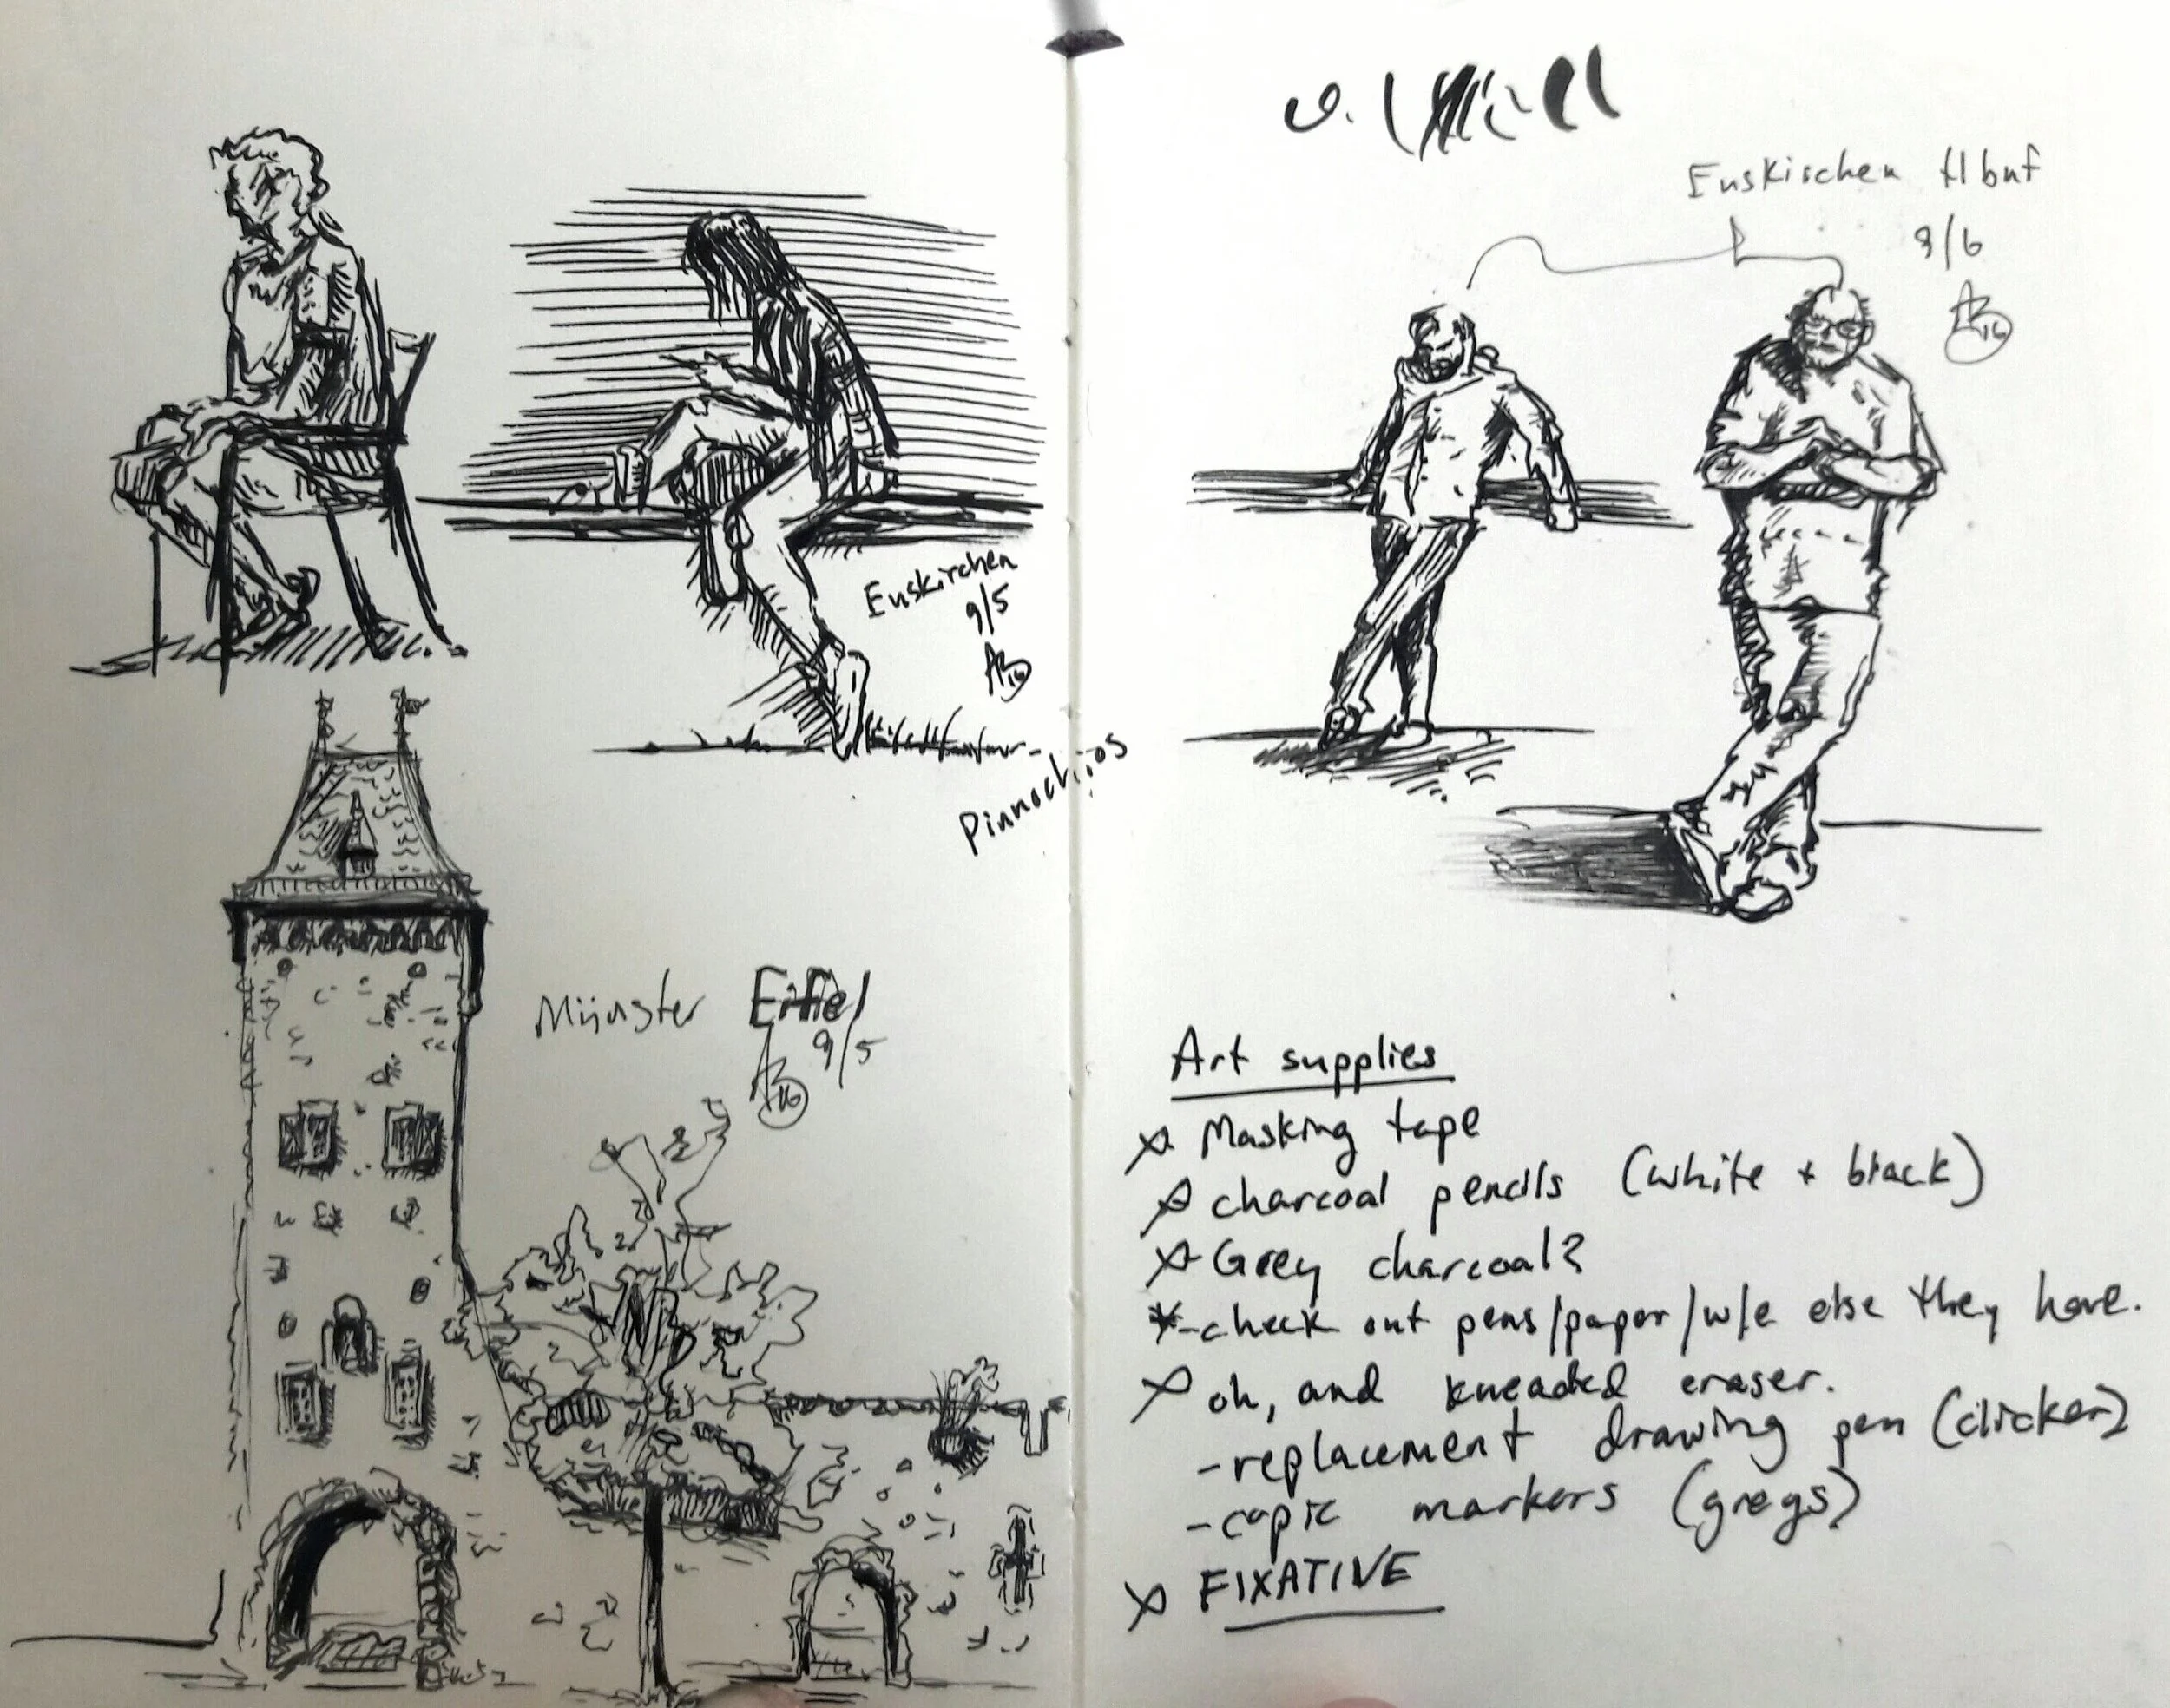 Euskirchen
9/5
AB
16
Pinnochios
Münster Eifel
9/5
AB
16
Euskirchen Hbnf
9/6
AB
16
Art supplies
Masking tape
charcoal pencils (white + black)
Grey charcoal?
-check out pens/paper/w/e else they have.
oh, and kneaded eraser.
-replacement drawing pen (clicker)
-copic markers (greys)
FIXATIVE